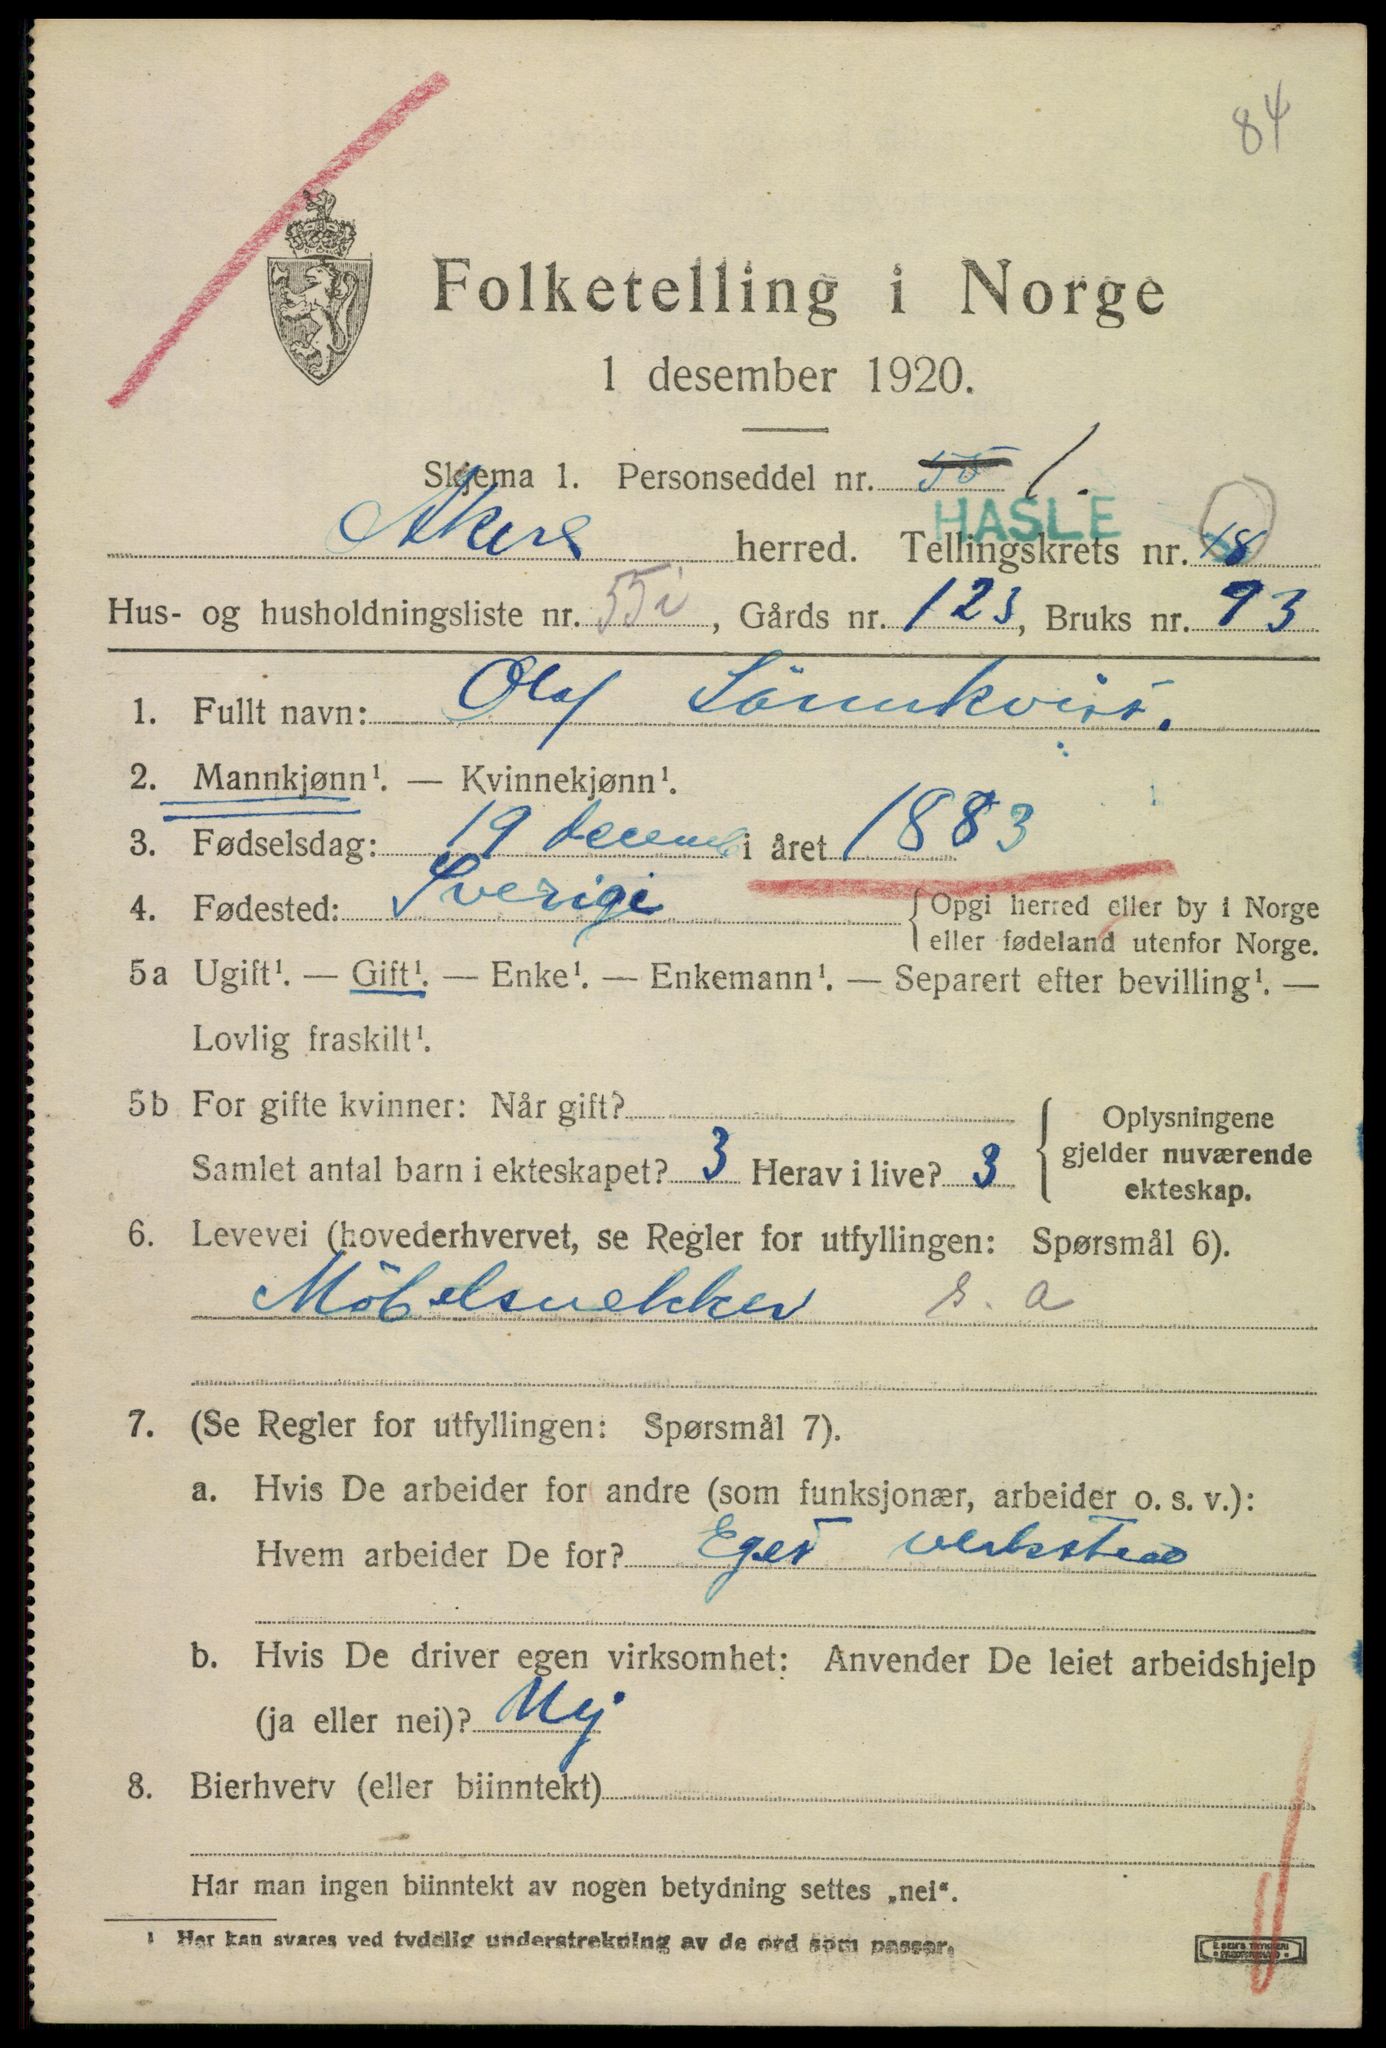 84
Folketelling i Norge
1 desember 1920.
Skjema 1. Personseddel nr. 55 1.
HASLE
Akers herred. Tellingskrets nr. 18
Hus- og husholdningsliste nr. 55i, Gårds nr. 123, Bruks nr. 93
1. Fullt navn: Olaf Lönnkvist.
2. Mannkjønn¹. — Kvinnekjønn¹.
3. Fødselsdag: 19 decemb i året 1883
4. Fødested: Sverige {Opgi herred eller by i Norge
eller fødeland utenfor Norge.
5a Ugift¹. — Gift¹. — Enke¹. — Enkemann¹. — Separert efter bevilling¹. —
Lovlig fraskilt¹.
5b For gifte kvinner: Når gift? { Oplysningene
gjelder nuværende
ekteskap.
Samlet antal barn i ekteskapet? 3 Herav i live? 3
6. Levevei (hovederhvervet, se Regler for utfyllingen: Spørsmål 6).
Möbelsnekker s. a
7. (Se Regler for utfyllingen: Spørsmål 7).
a. Hvis De arbeider for andre (som funksjonær, arbeider o. s. v.):
Hvem arbeider De for? Eget verksted
b. Hvis De driver egen virksomhet: Anvender De leiet arbeidshjelp
(ja eller nei)? Nej
8. Bierhverv (eller biinntekt)
Har man ingen biinntekt av nogen betydning settes „nei“.
1 Her kan svares ved tydelig understrekning av de ord som passer.